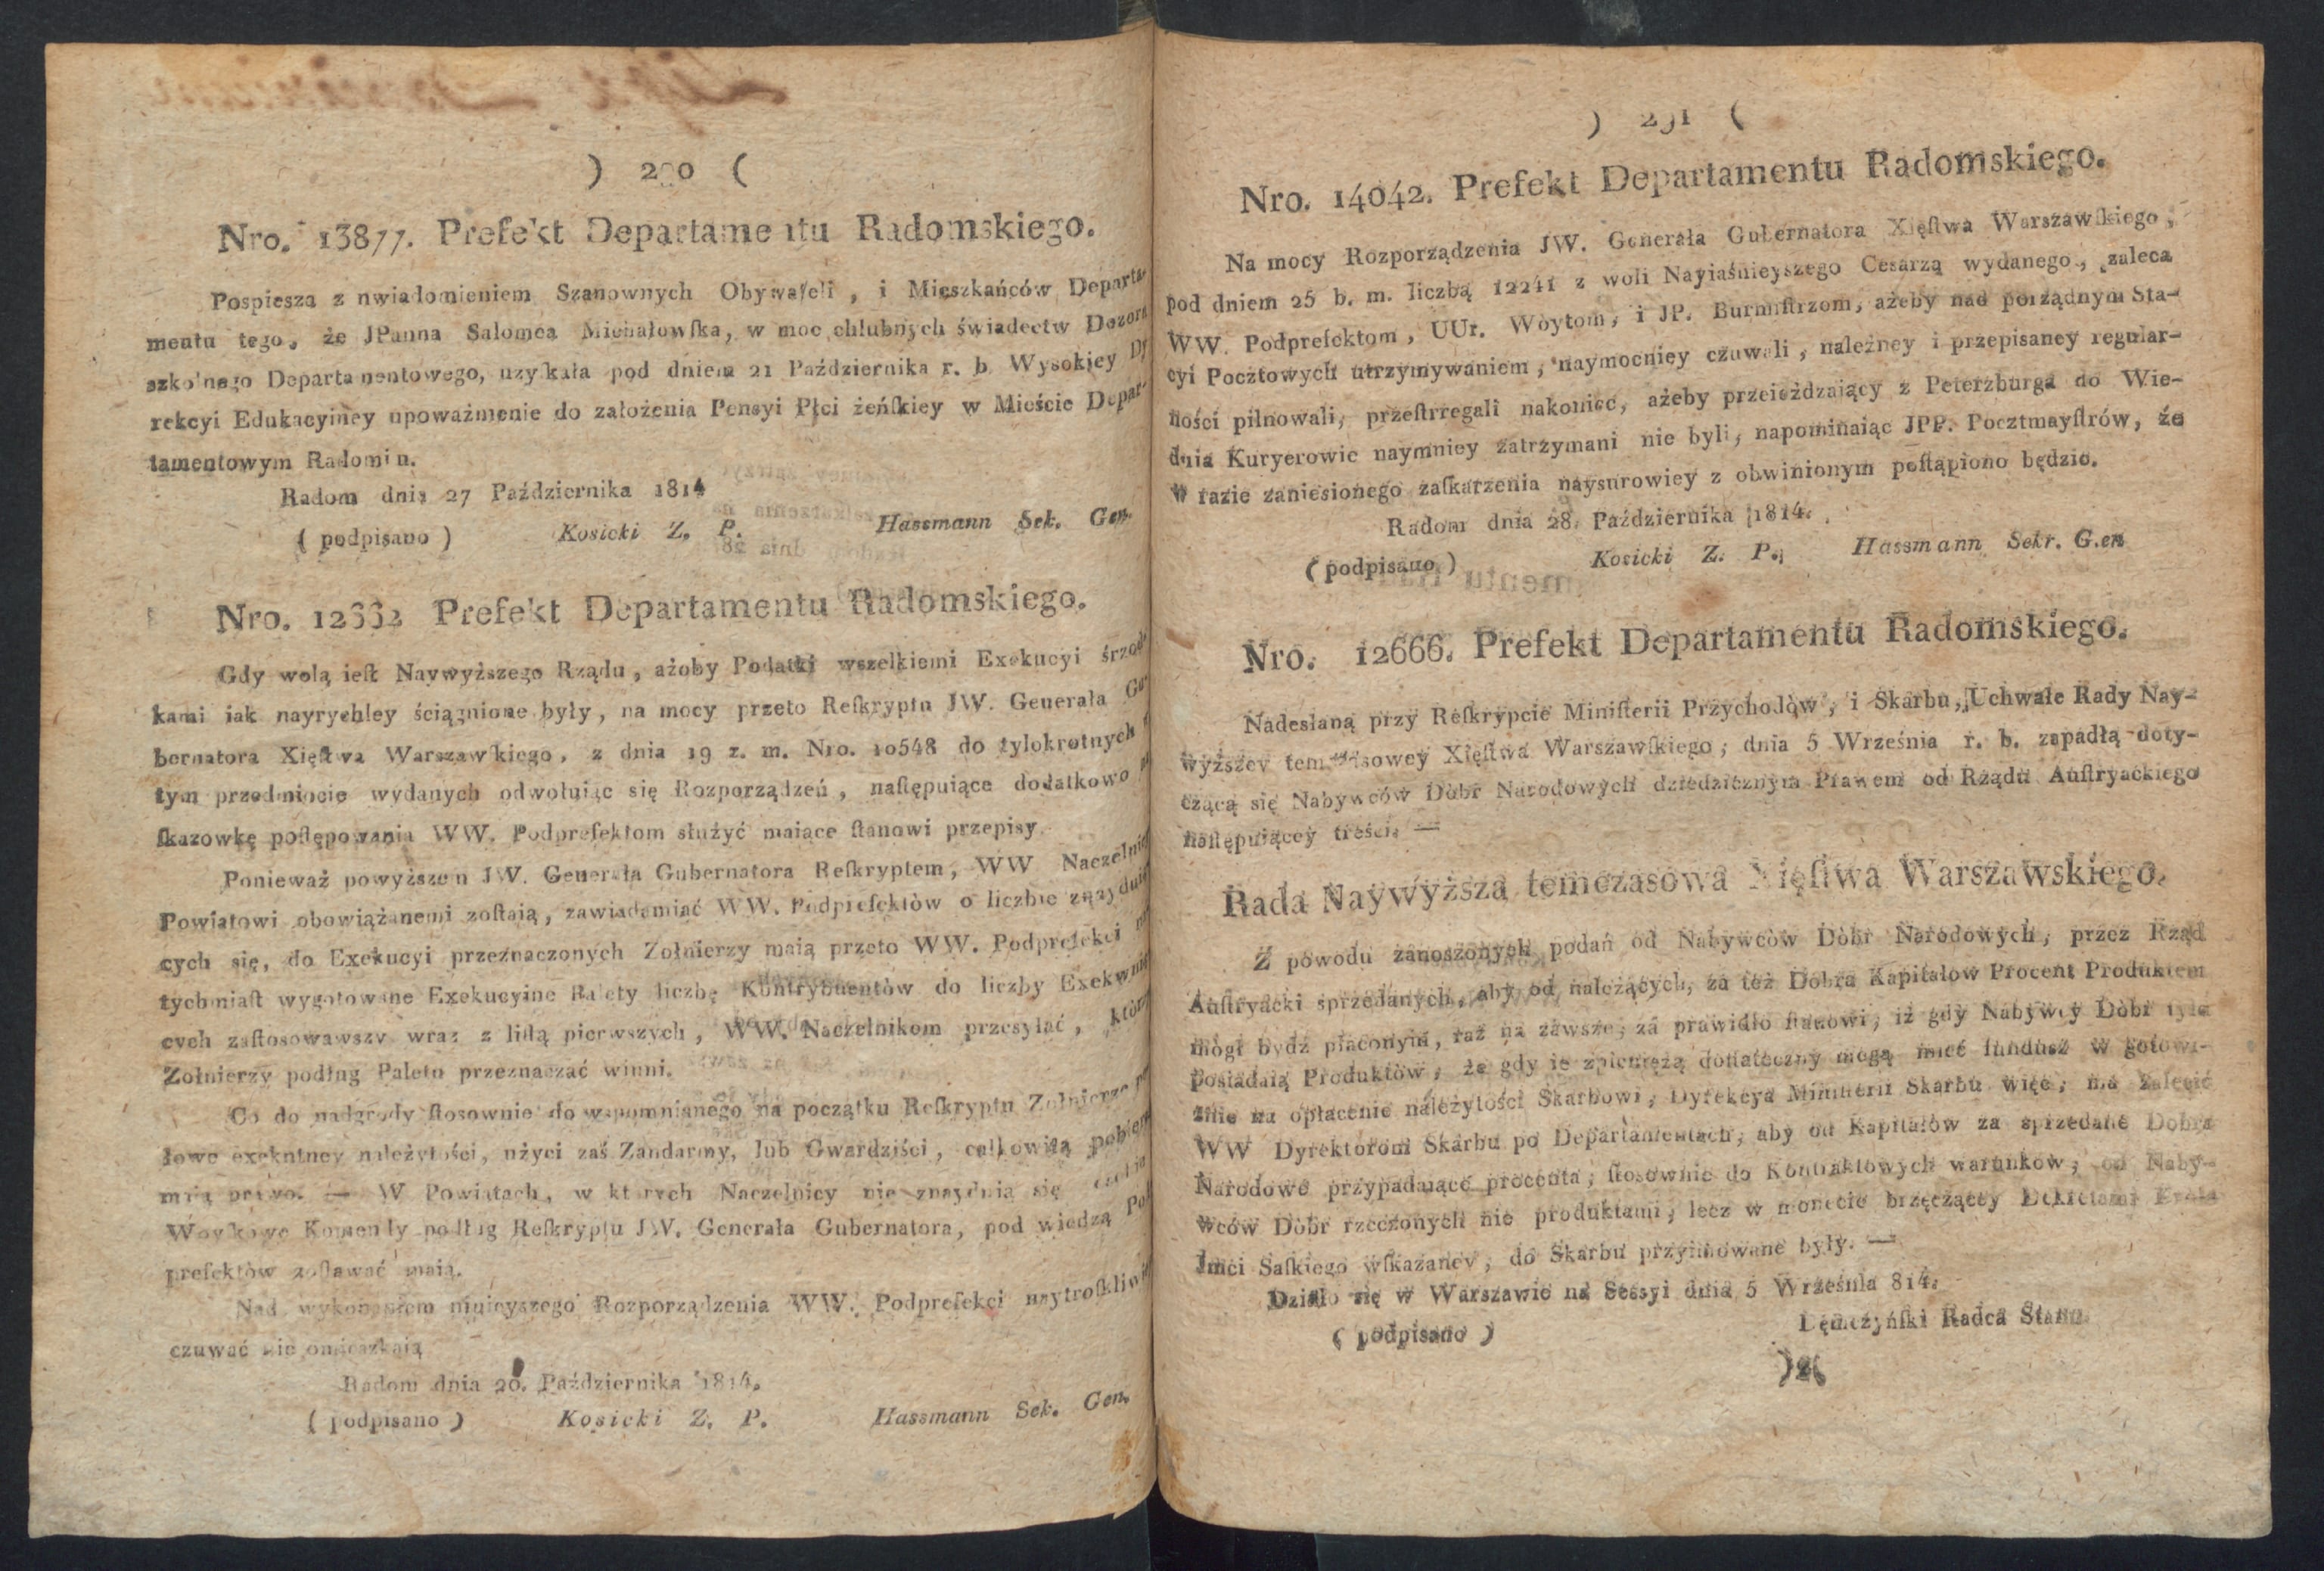 ) 290 (
Nro. 13877. Prefekt Departamentu Radomskiego.
Pospiesza z uwiadomieniem Szanownych Obywateli , i Mieszkańców Departa-
mentu tego, że JPanna Salomea Michałowſka, w moc chlubnych świadectw Dozoru
szkolnego Departamentowego, uzyſkała pod dniem 21 Października r. b. Wysokiey Dy
rekcyi Edukacyiney upoważnienie do założenia Pensyi Płci żeńſkiey w Mieście Depar-
tamentowym Radomiu.
Radom dnia 27 Października 1814
( podpisano ) Kosicki Z. P. Hassmann Sek. Gen.
Nro. Prefekt Departamentu Radomskiego.
Gdy wolą ieſt Naywyższego Rządu , ażeby Podatki wszelkiemi Exekucyi śrzod
kami iak nayrychley ściągnione były, na mocy przeto Reſkryptu JW. Generała Gu-
bernatora Xięſtwa Warszawſkiego, z dnia 19 z. m. Nro. 10548 do tylokrotnych
tym przedmiocie wydanych odwołuiąc się Rozporządzeń , naſtępuiące dodatkowo
ſkazowkę poſtępowania WW. Podprefektom służyć maiące ſtanowi przepisy.
Ponieważ powyższem JW. Generała Gubernatora Reſkryptem, WW Naczelnicy
Powiatowi obowiązanemi zoſtaią, zawiadamiać WW. Podprefektów o liczbie znayduią
cych się, do Exekucyi przeznaczonych Zołnierzy maią przeto WW. Podprefekci
tychmiaſt wygotowane Exekucyine Palety liczbę Kontrybuentów do liczby Exekwuią
cych zaſtosowawszy wraz z liſtą pierwszych , WW. Naczelnikom przesyłać , którzy
Zołnierzy podług Paletu przeznaczać winni.
Co do nadgrody ſtosownie do wspomnianego na początku Reſkryptu Zołnierze
łowę exekutney należytości, użyci zaś Zandarmy, lub Gwardziści , całkowitą pobierać
maią prawo. — W Powiatach, w których Naczelnicy nie znayduią się
Woyſkowe Komendy podług Reſkryptu JW. Generała Gubernatora, pod wiedzą Pod
prefektów zoſtawać maią.
Nad wykonaniem ninieyszego Rozporządzenia WW. Podprefekci naytroſkliwiey
czuwać nie omieszkaią
Radom dnia 20. Października 1814.
( podpisano ) Kosicki Z. P. Hassmann Sek. Gen.
) 291 (
Nro. 14042. Prefekt Departamentu Radomskiego.
Na mocy Rozporządzenia JW. Generała Gubernatora Xięſtwa Warszawſkiego ,
pod dniem 25 b. m. liczbą 12241 z woli Nayiaśnieyszego Cesarza wydanego, zaleca
WW. Podprefektom , UUr. Woytom, i JP. Burmiſtrzom, ażeby nad porządnym Sta-
cyi Pocztowych utrzymywaniem , naymocniey czuwali , należney i przepisaney regular-
ności pilnowali, przeſtrregali nakoniec, ażeby przeieżdzaiący z Peterzburga do Wie-
dnia Kuryerowie naymniey zatrzymani nie byli, napominaiąc JPP. Pocztmayſtrów, że
w razie zaniesionego zaſkarzenia naysurowiey z obwinionym poſtąpiono będzie.
Radom dnia 28. Października 1814.
( podpisano ) Kosicki Z. P. Hassmann Sekr. Gen
Nro. 12666. Prefekt Departamentu Radomskiego.
Nadesłaną przy Reſkrypcie Miniſterii Przychodów , i Skarbu, Uchwałe Rady Nay-
wyższey temczasowey Xięſtwa Warszawſkiego , dnia 5 Września r. b. zapadłą doty-
czącą się Nabywców Dóbr Narodowych dziedzicznym Prawem od Rządu Auſtryackiego
naſtępuiącey treści. —
Rada Naywyższa temczasowa Xięſtwa Warszawskiego.
Z powodu zanoszonych podań od Nabywców Dóbr Narodowych, przez Rząd
Auſtryacki sprzedanych, aby od należących, za też Dobra Kapitałow Procent Produktem
mógł bydź płaconym, raz na zawsze, za prawidło ſtanowi, iż gdy Nabywcy Dóbr tyle
posiadaią Produktów , że gdy ie spieniężą doſtateczny mogą mieć fundusz w gotowi-
znie na opłacenie należytości Skarbowi, Dyrekcya Miniſterii Skarbu więc, ma zalecić
WW Dyrektorom Skarbu po Departamentach, aby od Kapitałów za sprzedane Dobra
Narodowe przypadaiące procenta, ſtosownie do Kontraktowych warunków, od Naby-
wców Dóbr rzeczonych nie produktami, lecz w monecie brzęczącey Dekretami Króla
Jmci Saſkiego wſkazaney, do Skarbu przyimowane były. —
Działo się w Warszawie na Sessyi dnia 5 Września 814.
( podpisano ) Radca Stanu.